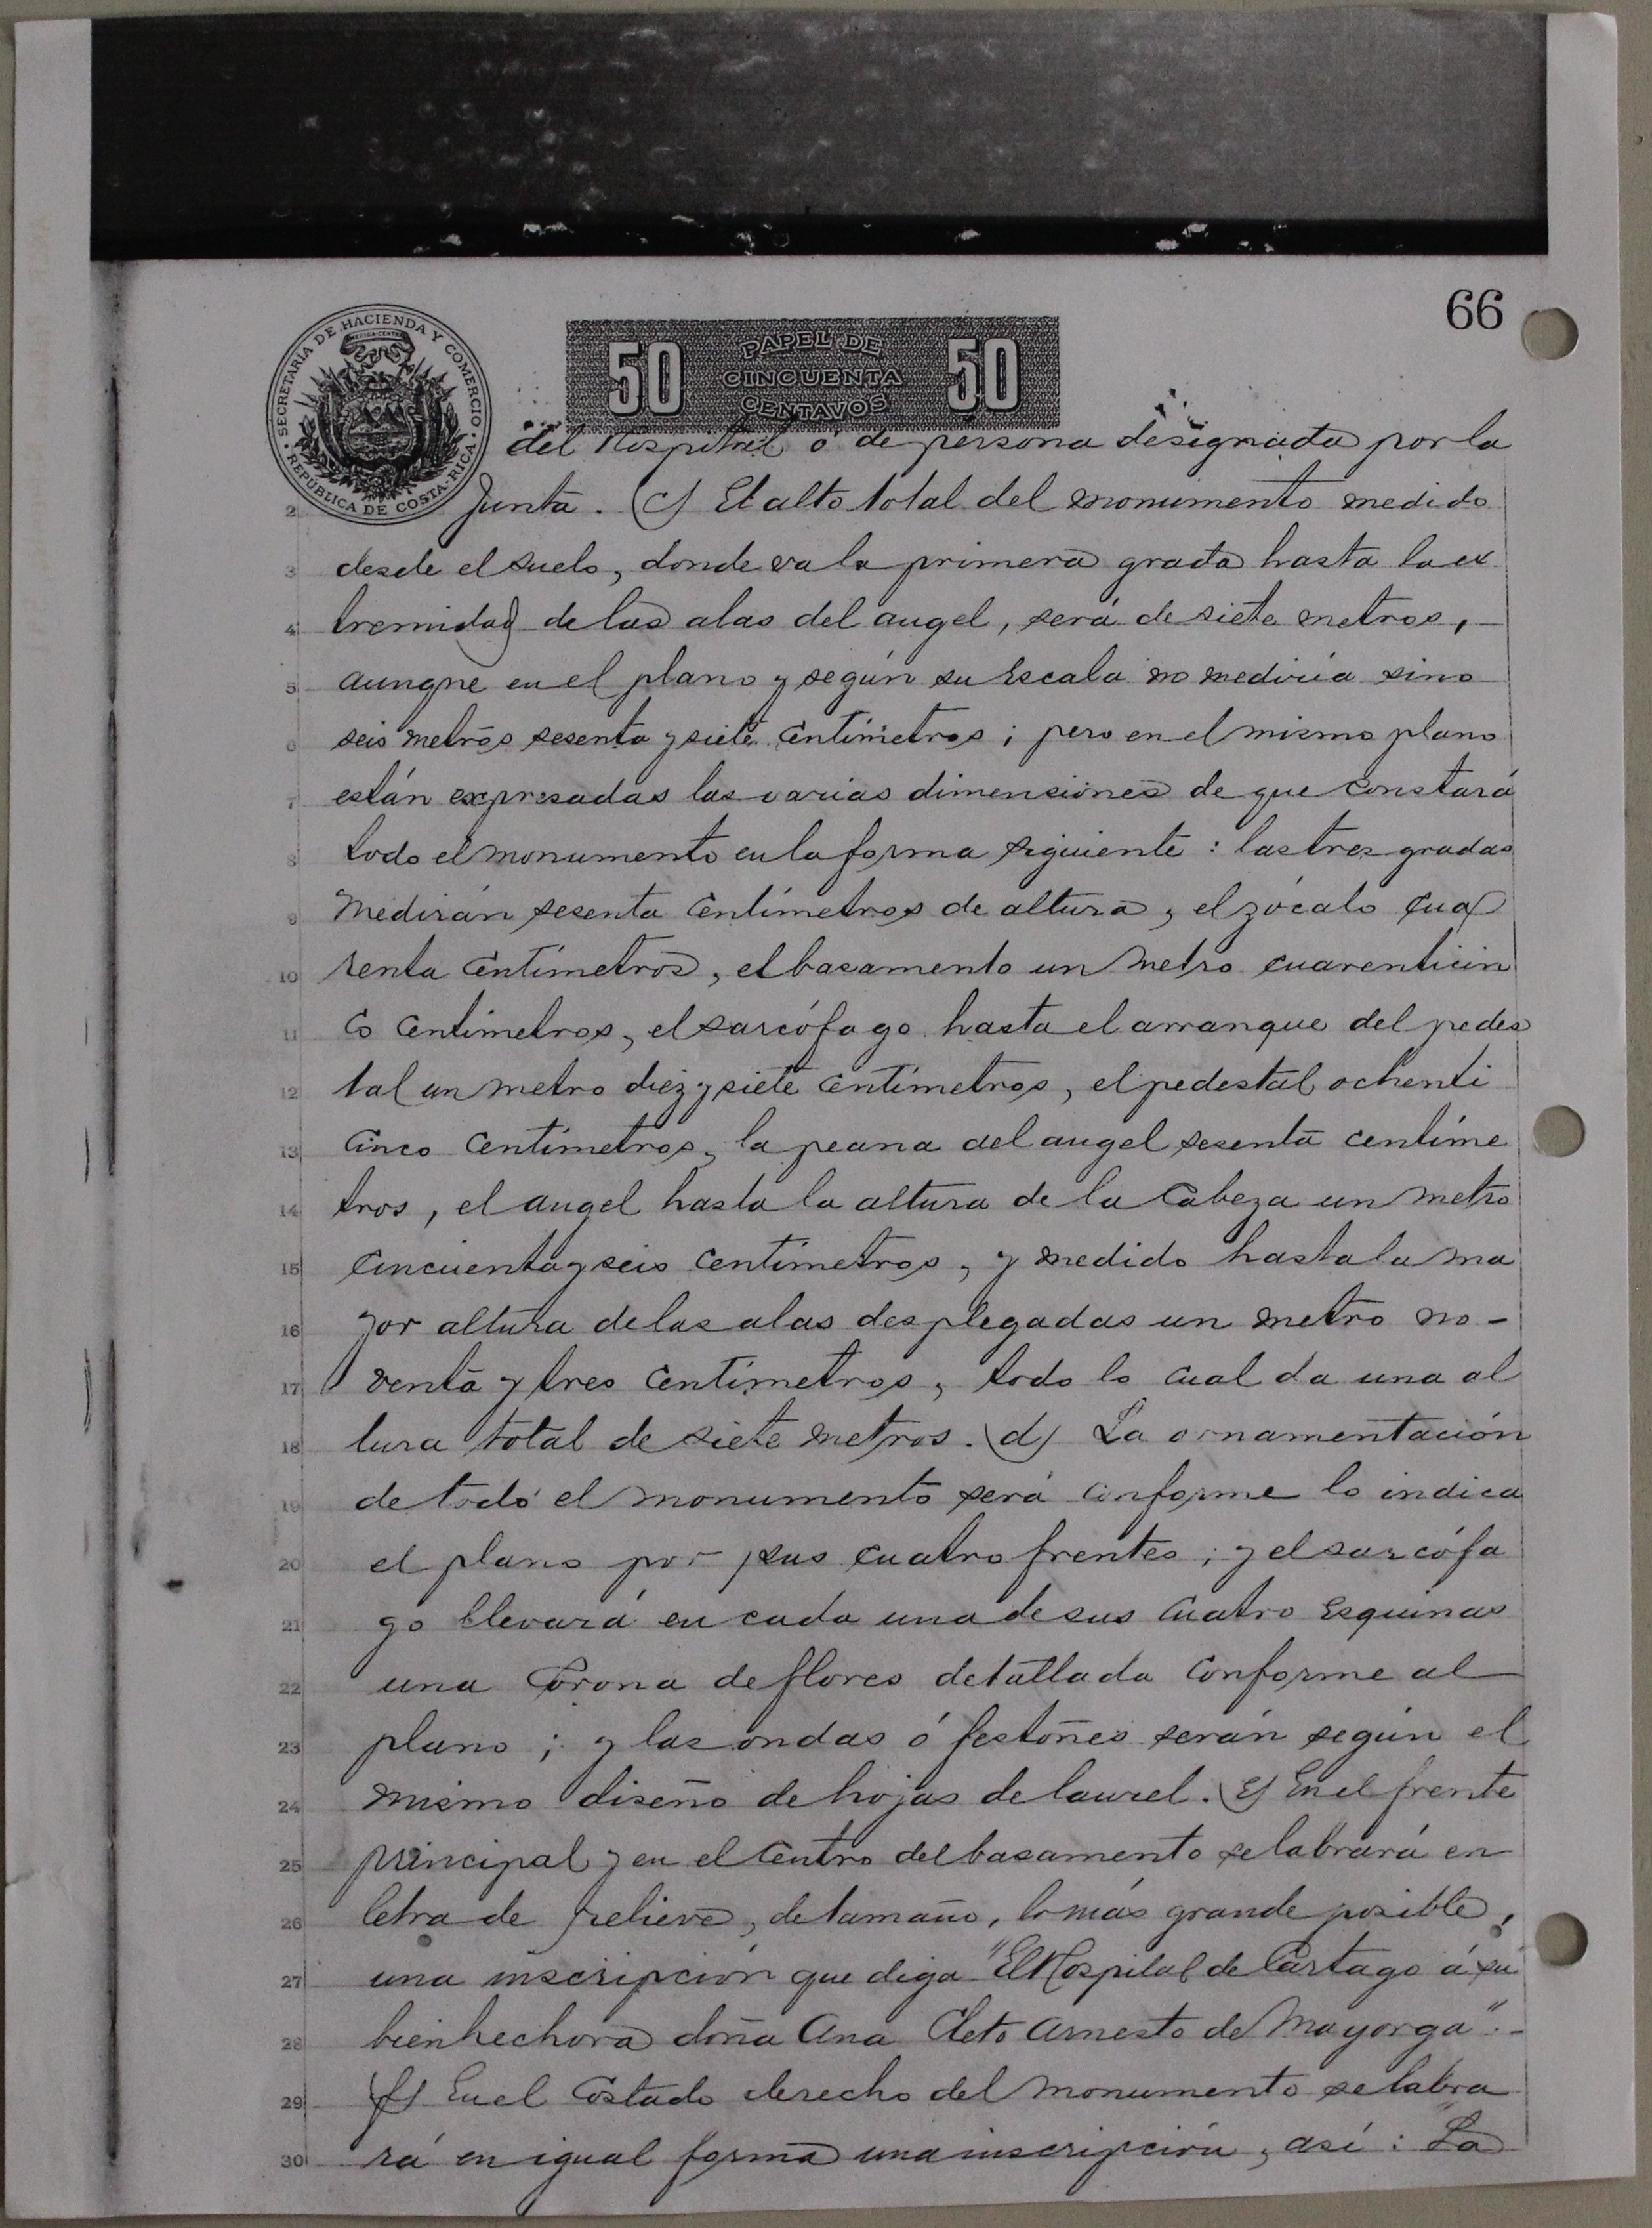 66
SECRETARIA DE HACIENDA Y COMERCIO
REPÚBLICA DE COSTA-RICA
50 PAPEL DE CINCUENTA CENTAVOS 50
del Hospital ó de persona designada por la
2 Junta. (c) El alto total del monumento medido
3 desde el suelo, donde va la primera grada hasta la ex
4 tremidad de las alas del angel, será de siete metros,
5 aunque en el plano y según su Escala no mediría sino
6 seis metros sesenta y siete centímetros; pero en el mismo plano
7 están expresadas las varias dimensiones de que constará
8 todo el monumento en la forma siguiente: las tres gradas
9 medirán sesenta centímetros de altura, el zócalo cua
10 renta centímetros, el basamento un metro cuarenticin
11 co centímetros, el sarcófago hasta el arranque del pedes
12 tal un metro diez y siete centímetros, el pedestal ochenti
13 cinco centímetros, la peana del angel sesenta centíme
14 tros, el angel hasta la altura de la Cabeza un metro
15 cincuenta y seis centímetros, y medido hasta la ma
16 yor altura de las alas desplegadas un metro no-
17 venta y tres centímetros, todo lo cual da una al
18 tura total de siete metros. (d) La ornamentación
19 de todo el monumento será conforme lo indica
20 el plano por sus cuatro frentes; y el sarcófa
21 go llevará en cada una de sus cuatro Esquinas
22 una Corona de flores detallada conforme al
23 plano; y las ondas ó festones serán según el
24 mismo diseño de hojas de laurel. (e) En el frente
25 principal y en el centro del basamento se labrará en
26 letra de relieve, de tamaño, lo más grande posible,
27 una inscripción que diga "El Hospital de Cartago á su
28 bienhechora doña Ana Cleto Arnesto de Mayorga".-
29 (f) En el costado derecho del monumento se labra
30 rá en igual forma una inscripción, así: "La